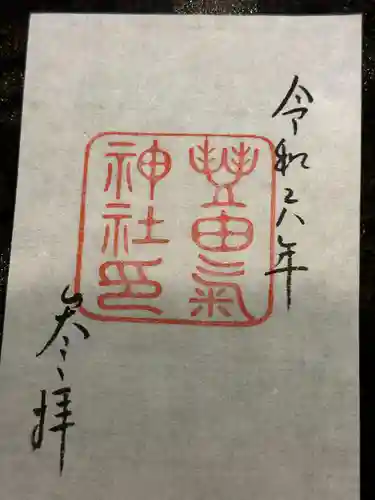 令和六年
由氣
神社印
参拝